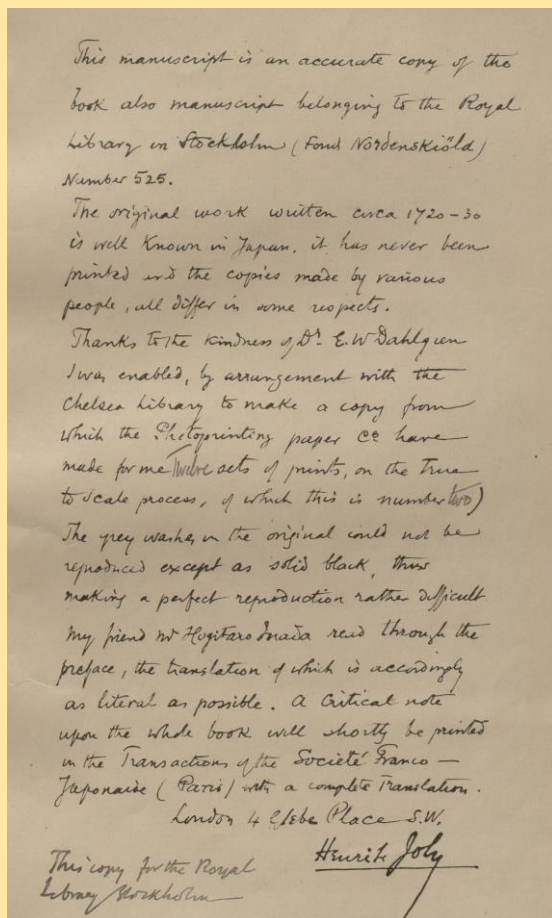 This manuscript is an accurate copy of the
book also manuscript belonging to the Royal
Library in Stockholm (Fond Nordenskiöld)
Number 525.
The original work written circa 1720-30
is well Known in Japan. it has never been
printed and the copies made by various
people, all differ in some respects.
Thanks to the kindness of Dr. E. W Dahlgren
I was enabled, by arrangement with the
Chelsea Library to make a copy from
which the Photoprinting paper Co have
made for me Twelve sets of prints, on the True
to Scale process, of which this is number two)
The grey washes in the original could not be
reproduced except as solid black, thus
making a perfect reproduction rather difficult
My friend Mr Hogitaro Inada read through the
preface, the translation of which is accordingly
as literal as possible. A Critical note
upon the whole book will shortly be printed
in the Transactions of the Société Franco—
Japonaise (Paris) with a complete Translation.
London 4 Glebe Place S.W.
Henri L Joly
This copy for the Royal
Library Stockholm